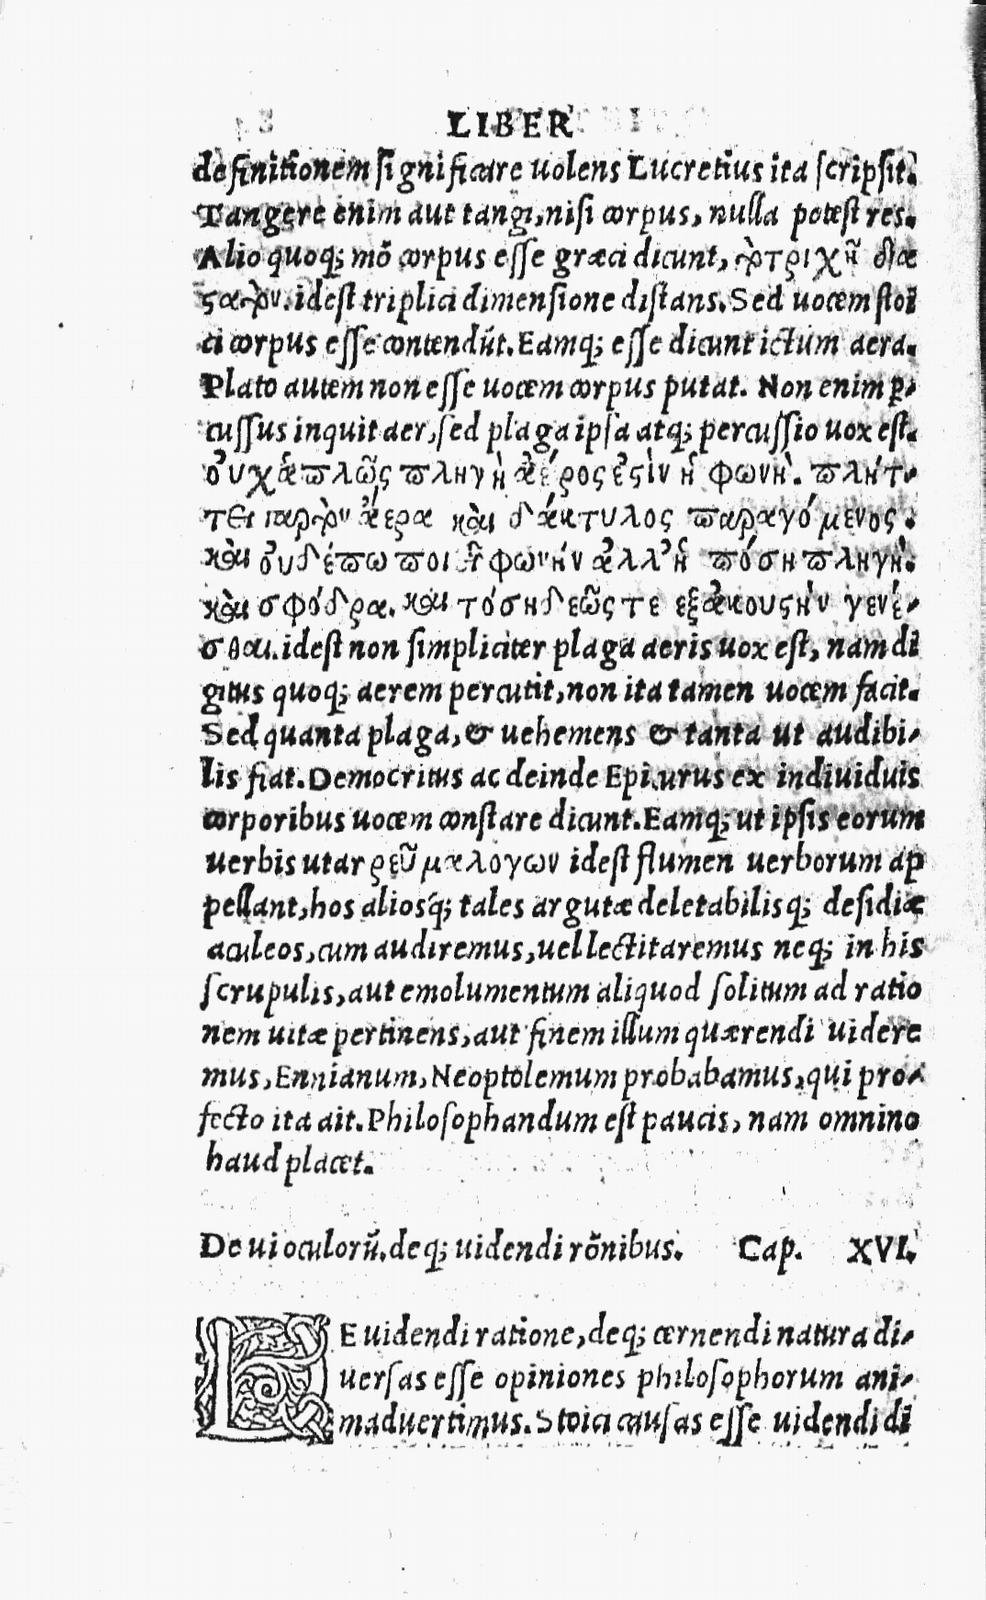 LIBER
definitionem significare uolens Lucretius ita scripsit.
Tangere enim aut tangi, nisi corpus, nulla potest res.
Alio quoq; mõ corpus esse græci dicunt, τὸ τριχῆ δια
ϛατὸν. idest triplici dimensione distans. Sed uocem stoi
ci corpus esse contendũt. Eamq; esse dicunt ictum aera.
Plato autem non esse uocem corpus putat. Non enim ꝑ-
cussus inquit aer, sed plaga ipsa atq; percussio uox est.
οὐχ ἁπλῶς πληγὴ ἀέρος ἐϛὶν ἡ φωνὴ. πλήτ-
τει παρὸν ἀερα καὶ δάκτυλος παραγόμενος.
καὶ οὐδέπω ποιεῖ φωνήν ἀλλ' ἡ πόση πληγὴ.
καὶ σφόδρα. καὶ τόση δεῶςτε εξἀκουϛὴν γενέ-
σθαι. idest non simpliciter plaga aeris uox est, nam di
gitus quoq; aerem percutit, non ita tamen uocem facit.
Sed quanta plaga, & uehemens & tanta ut audibi-
lis fiat. Democritus ac deinde Epicurus ex indiuiduis
corporibus uocem constare dicunt. Eamq; ut ipsis eorum
uerbis utar ῥεῦμα λογων idest flumen uerborum ap
pellant, hos aliosq́; tales argutæ deletabilisq; desidiæ
aculeos, cum audiremus, uel lectitaremus neq; in his
scrupulis, aut emolumentum aliquod solitum ad ratio
nem uitæ pertinens, aut finem illum quærendi uidere
mus, Ennianum, Neoptolemum probabamus, qui pro-
fecto ita ait. Philosophandum est paucis, nam omnino
haud placet.
De ui oculorũ, deq; uidendi rõnibus. Cap. XVI.
E uidendi ratione, deq; cernendi natura di-
uersas esse opiniones philosophorum ani-
maduertimus. Stoici causas esse uidendi di